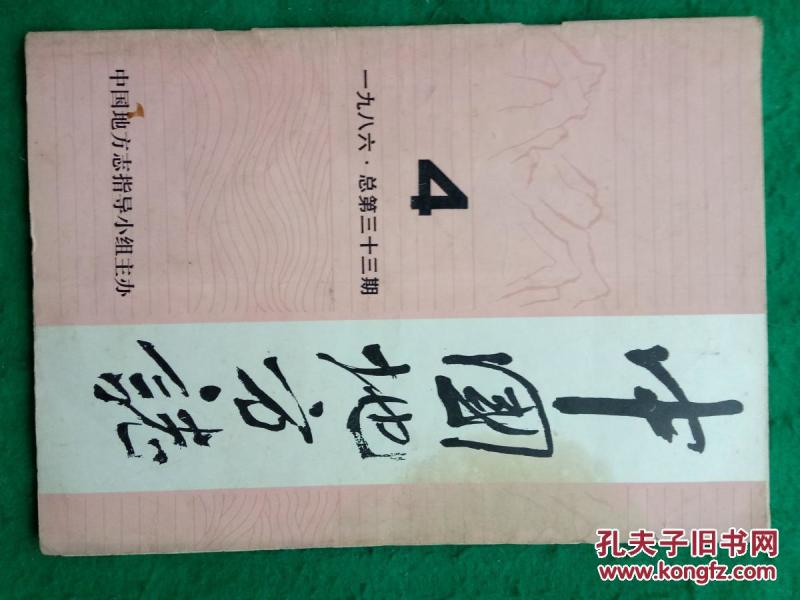 中國地方誌
4
一九八六·总第三十三期
中国地方志指导小组主办
孔夫子旧书网
www.kongfz.com